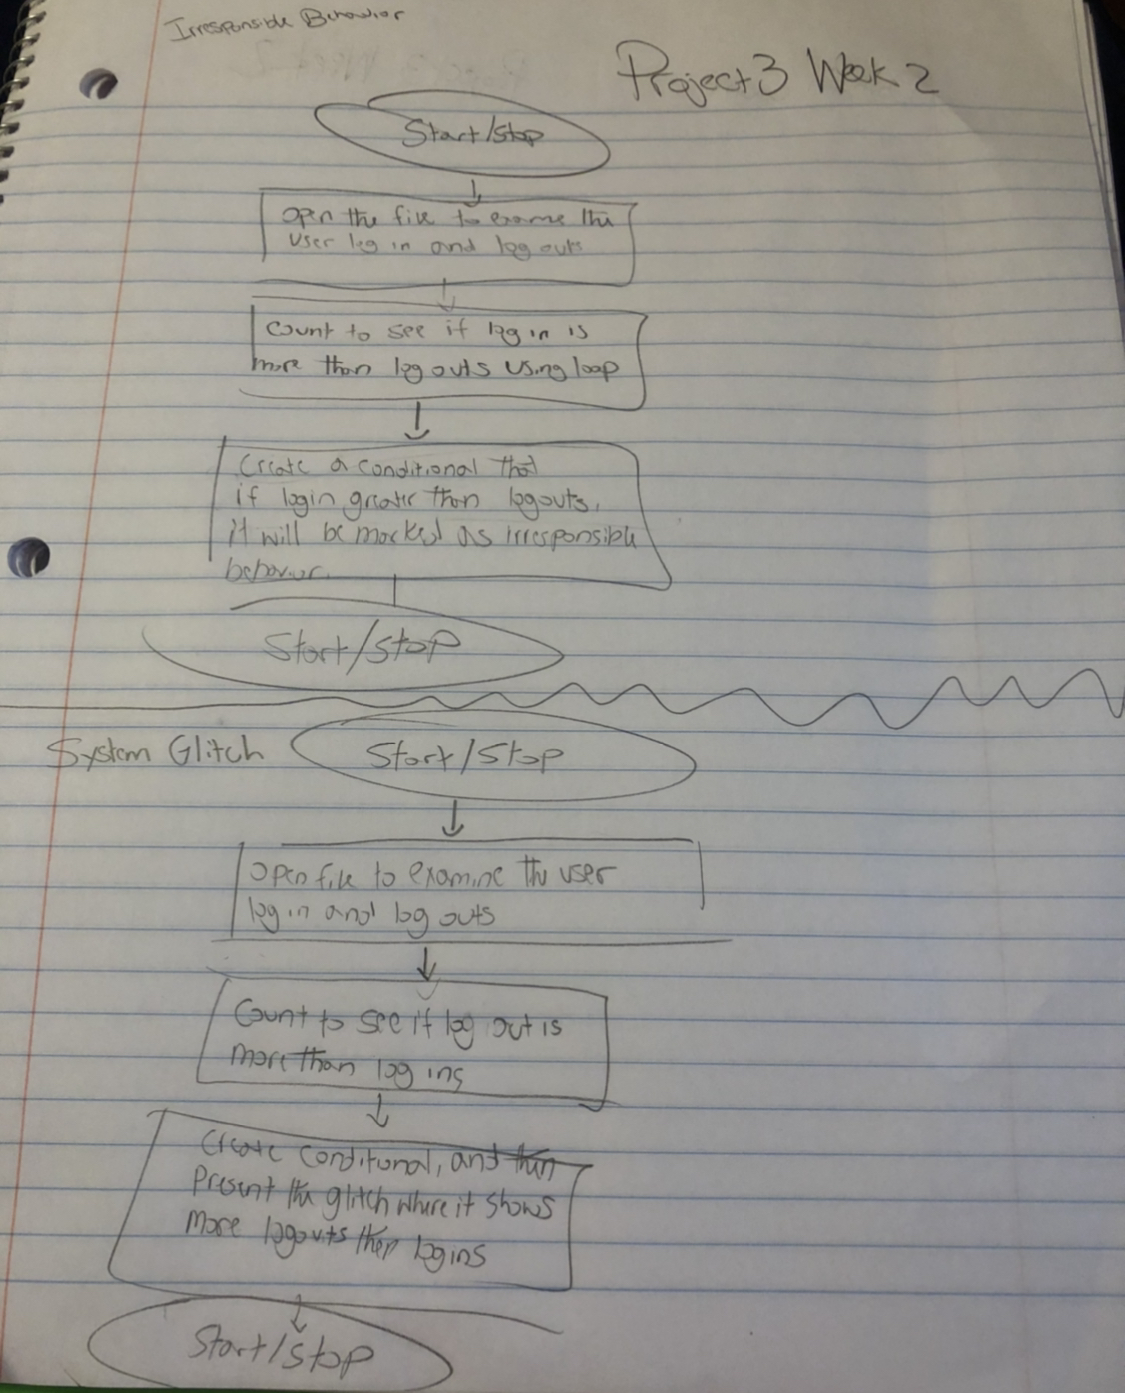 Irresponsible Behavior
Project 3 Week 2
Start/Stop
Open the file to examine the
user log in and log outs
Count to see if log in is
more than log outs using loop
Create a conditional that
if login greater than logouts,
it will be marked as irresponsible
behavior.
Start/Stop
System Glitch
Start/Stop
Open file to examine the user
log in and log outs
Count to see if log out is
more than log ins
Create conditional, and then
Present the glitch where it shows
more logouts then logins
Start/Stop